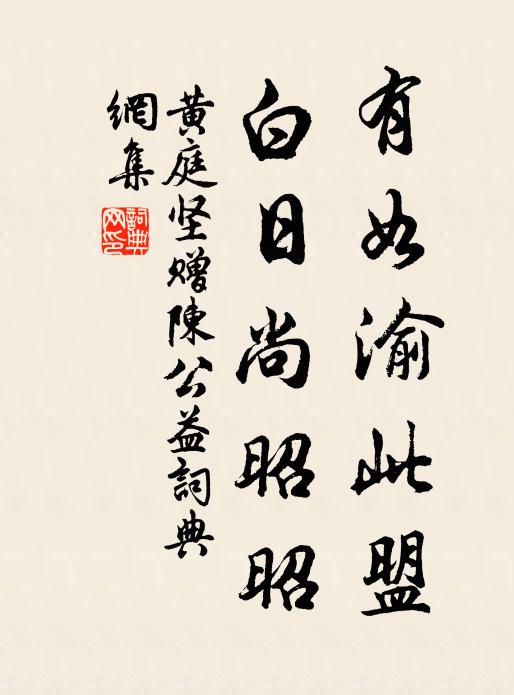 有如渝此盟
白日尚昭昭
黄庭坚赠陳公益詞典
網集
詞典网印